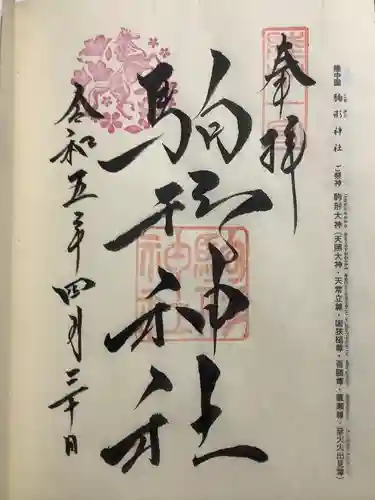 陸中国 駒形神社 ご祭神 駒形大神(天照大神・天常立尊・国狭槌尊・吾勝尊・置瀬尊・彦火火出見尊)
奉拝
駒形神社
令和五年四月三十日